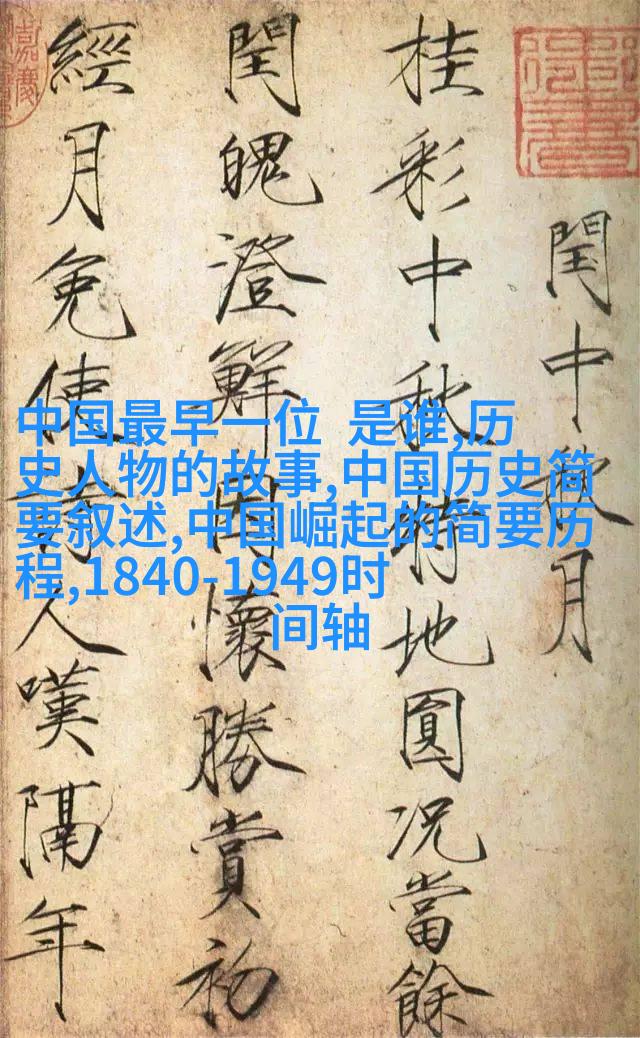 閏中秋月
桂彩中秋特地圓况當餘
閏魄澄鮮因懷勝賞初
經月免使詩人嘆隔年
中国最早一位 是谁,历
史人物的故事,中国历史简
要叙述,中国崛起的简要历
程,1840-1949时
间轴